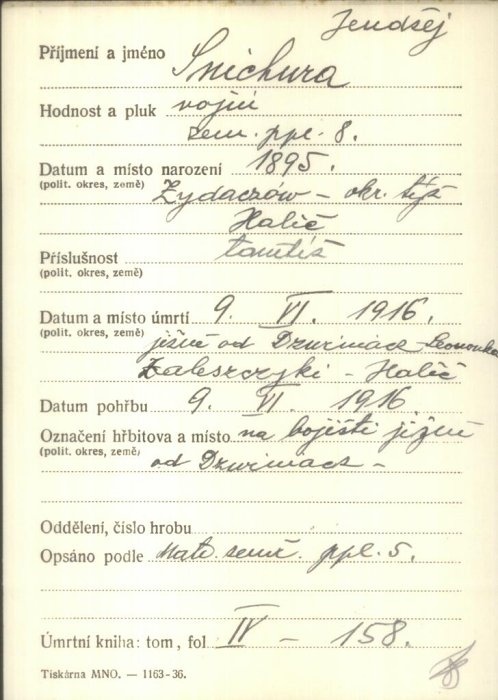 Jendsěj
Příjmení a jméno Snichura
Hodnost a pluk vojín
zem. ppl. 8.
Datum a místo narození 1895.
(polit. okres, země) Zydaczów – okr. týž
Halič
Příslušnost tamtéž
(polit. okres, země)
Datum a místo úmrtí 9. VI. 1916.
(polit. okres, země) jižně od Dzwiniacz
Zaleszczyki – Halič
Datum pohřbu 9. VI. 1916
Označení hřbitova a místo na bojišti jižně
(polit. okres, země) od Dzwiniacz –
Oddělení, číslo hrobu
Opsáno podle Matr. zemř. ppl. 5.
Úmrtní kniha: tom, fol IV – 158.
Tiskárna MNO. — 1163-36.